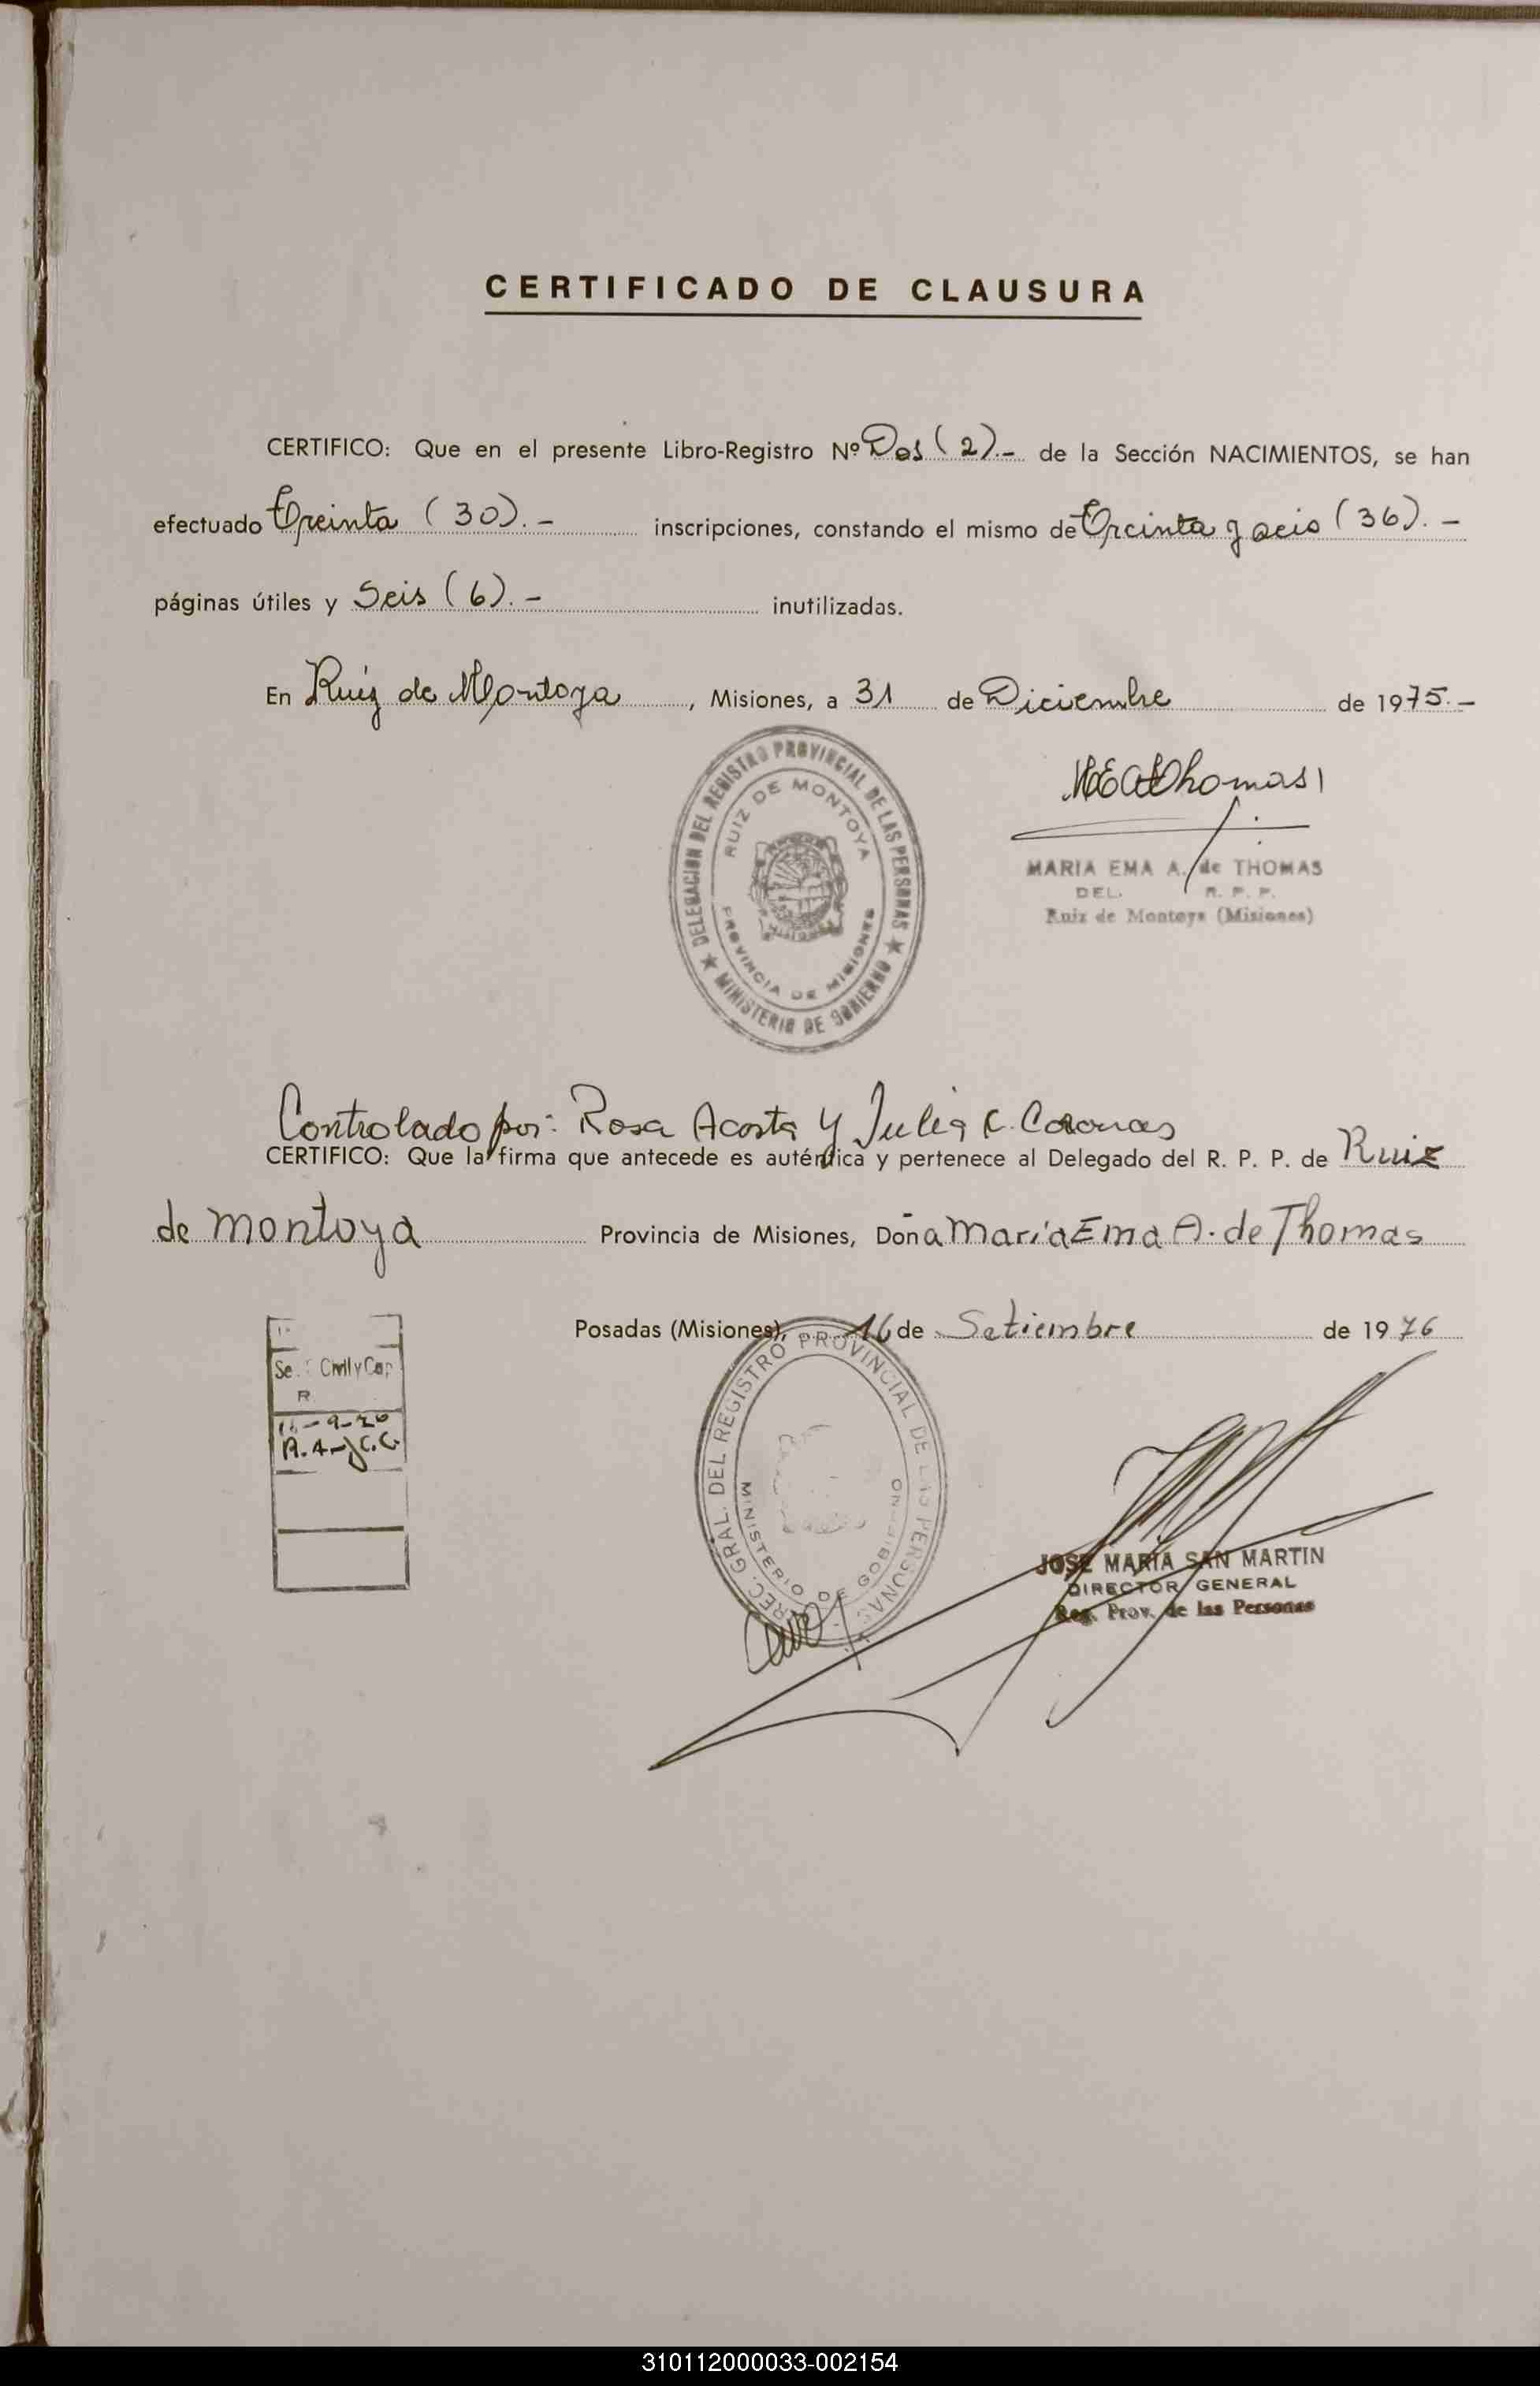 CERTIFICADO DE CLAUSURA
CERTIFICO: Que en el presente Libro-Registro Nº Dos (2).- de la Sección NACIMIENTOS, se han
efectuado Treinta (30).- inscripciones, constando el mismo de Treinta y seis (36).-
páginas útiles y Seis (6).- inutilizadas.
En Ruíz de Montoya, Misiones, a 31 de Diciembre de 1975.-
DELEGACION DEL REGISTRO PROVINCIAL DE LAS PERSONAS
★ MINISTERIO DE GOBIERNO ★
RUIZ DE MONTOYA
PROVINCIA DE MISIONES
MEAdeThomas
MARIA EMA A. de THOMAS
DEL. R. P. P.
Ruiz de Montoya (Misiones)
Controlado por: Rosa Acosta y Julia C.
CERTIFICO: Que la firma que antecede es auténtica y pertenece al Delegado del R. P. P. de Ruiz
de montoya Provincia de Misiones, Doña María Ema A. de Thomas
Posadas (Misiones), 16 de Setiembre de 1976
DIREC. GRAL. DEL REGISTRO PROVINCIAL DE LAS PERSONAS
MINISTERIO DE GOBIERNO
Civil y Cap
R.
R.A-J.C.C.
JOSE MARIA SAN MARTIN
DIRECTOR GENERAL
Reg. Prov. de las Personas
310112000033-002154